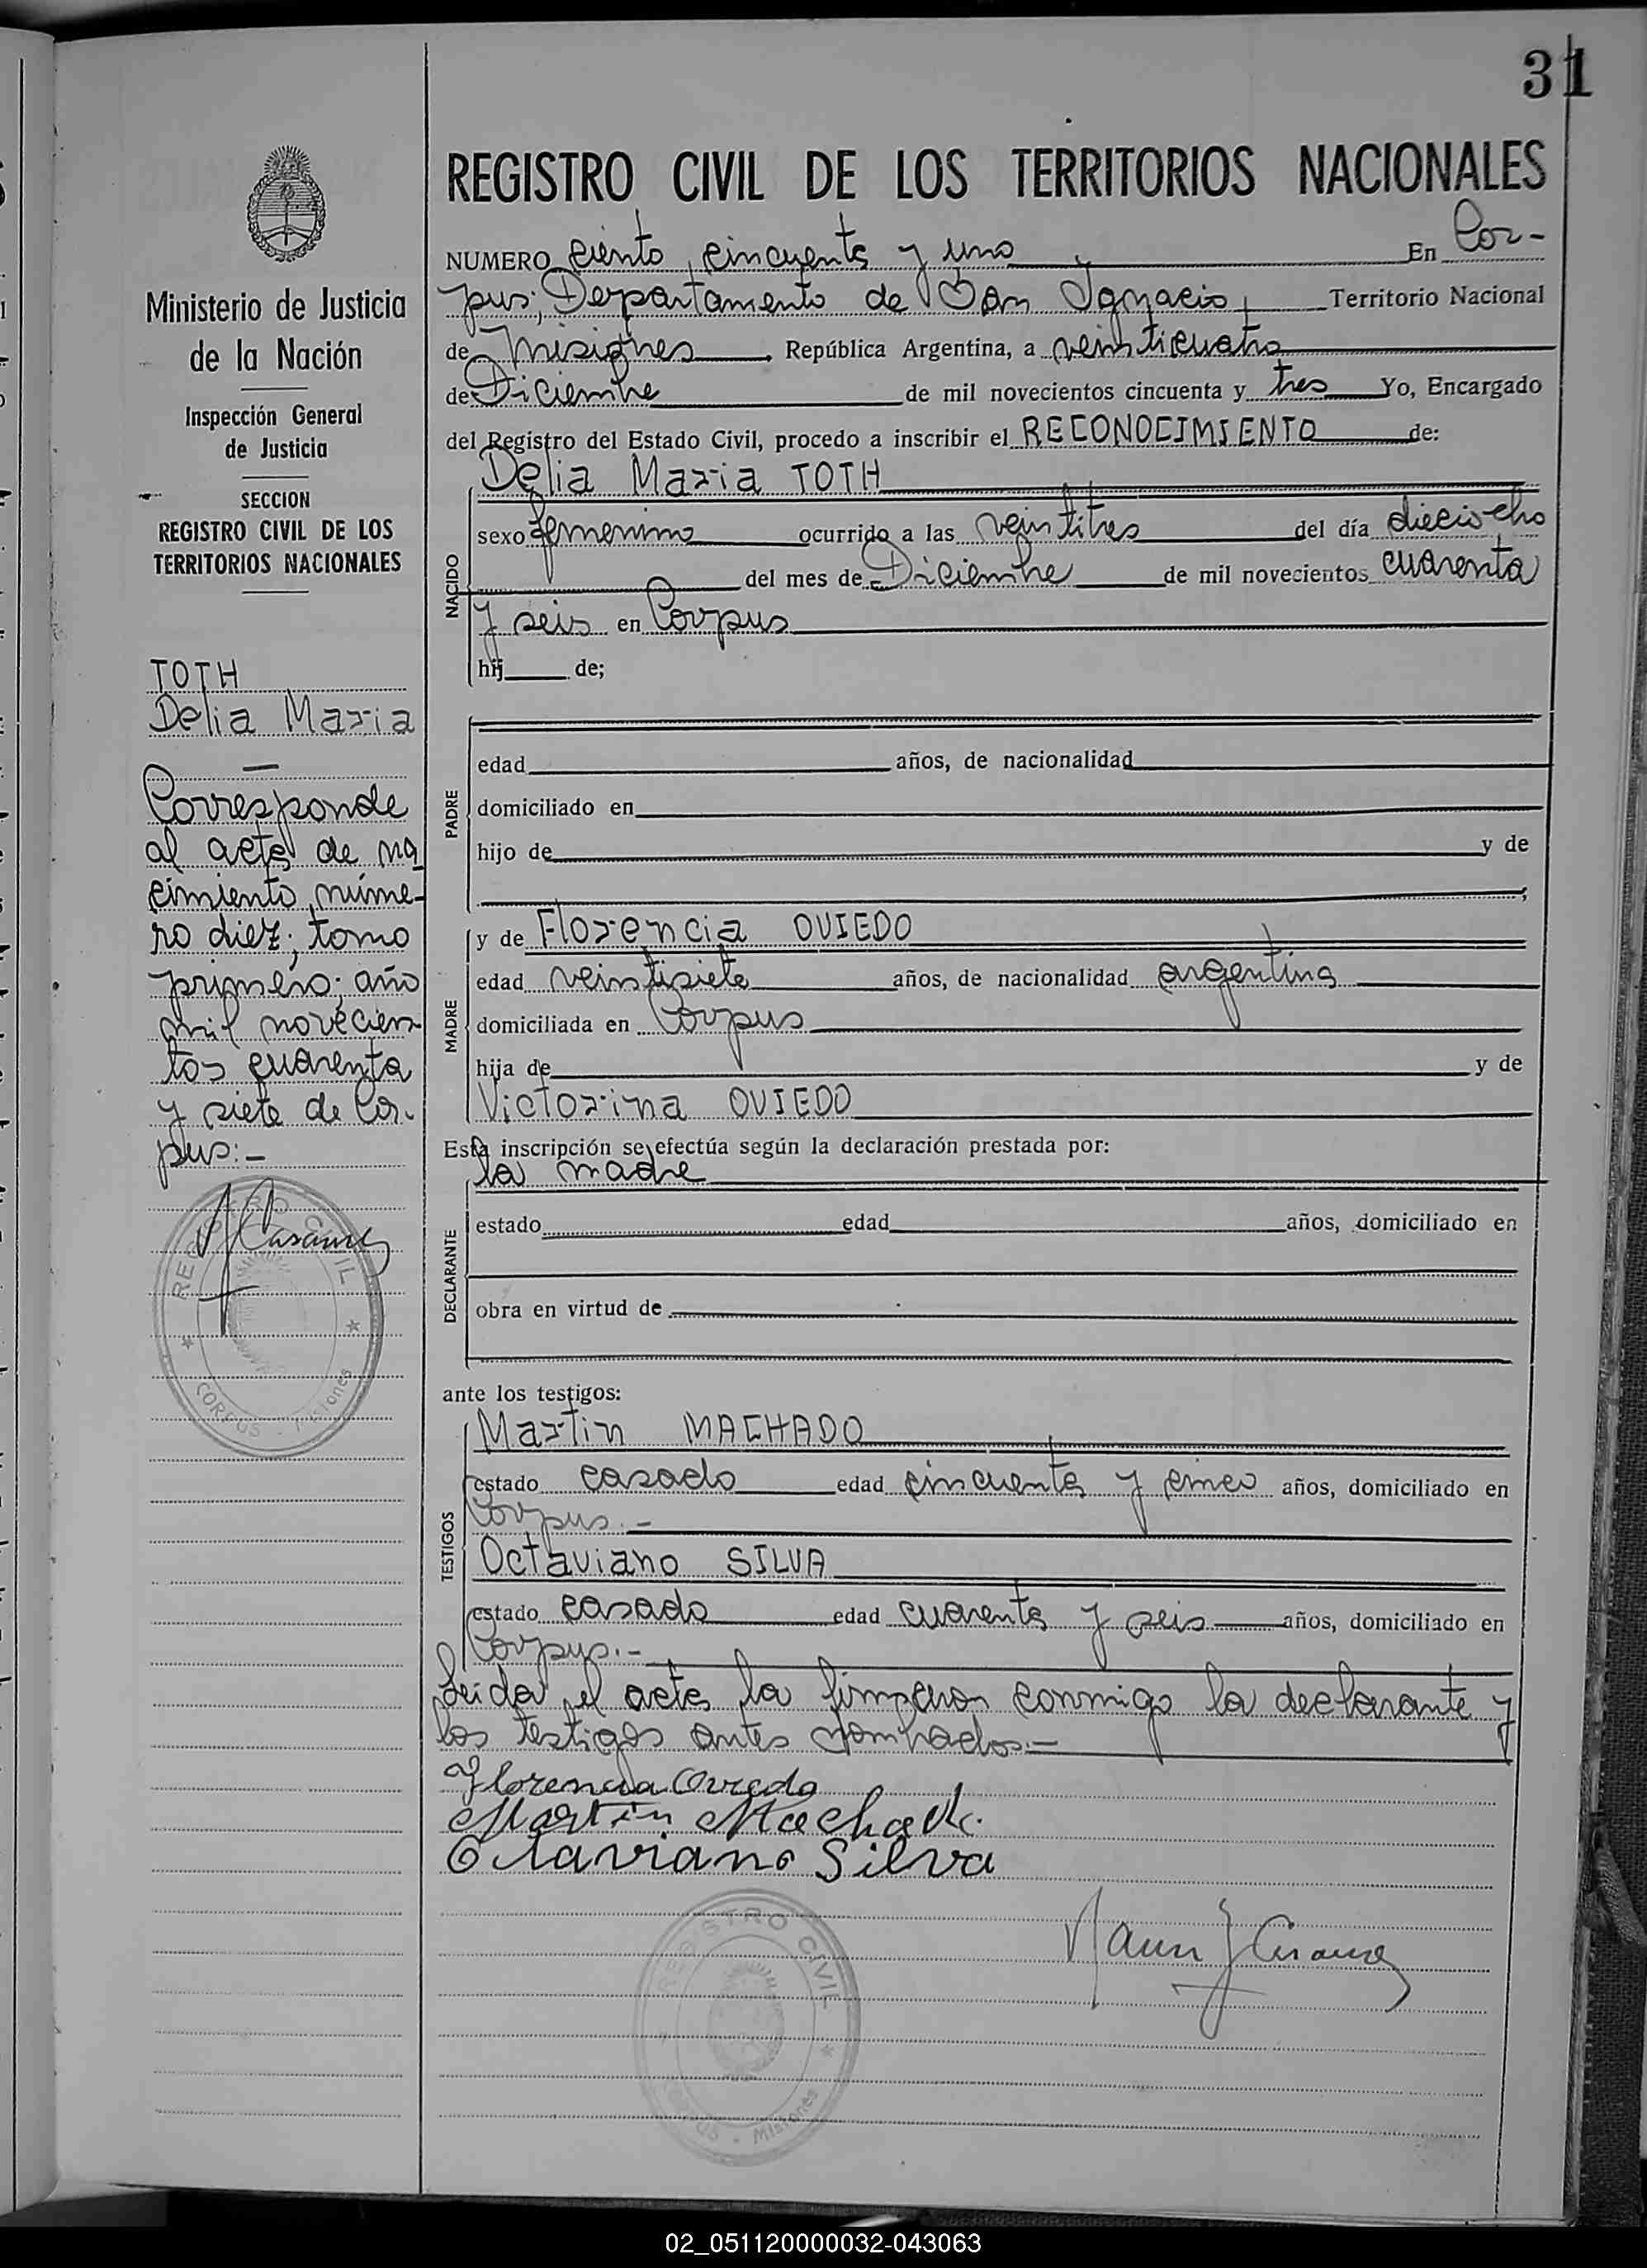 31
REGISTRO CIVIL DE LOS TERRITORIOS NACIONALES
NUMERO ciento cincuenta y uno En Cor-
pus; Departamento de San Ignacio, Territorio Nacional
de Misiones, República Argentina, a veinticuatro
de Diciembre de mil novecientos cincuenta y tres Yo, Encargado
del Registro del Estado Civil, procedo a inscribir el RECONOCIMIENTO de:
Delia Maria TOTH
NACIDO
sexo femenino ocurrido a las veintitres del día dieciocho
del mes de Diciembre de mil novecientos cuarenta
y seis en Corpus
hij de;
PADRE
edad años, de nacionalidad
domiciliado en
hijo de y de
MADRE
y de Florencia OVIEDO
edad veintisiete años, de nacionalidad argentina
domiciliada en Corpus
hija de y de
Victorina OVIEDO
Esta inscripción se efectúa según la declaración prestada por:
la madre
DECLARANTE
estado edad años, domiciliado en
obra en virtud de
ante los testigos:
TESTIGOS
Martin MACHADO
estado casado edad cincuenta y cinco años, domiciliado en
Corpus.-
Octaviano SILVA
estado casado edad cuarenta y seis años, domiciliado en
Corpus.-
Leida el acta la firmaron conmigo la declarante y
los testigos antes nombrados.-
Florencia Oviedo
Martin Machado.
Octaviano Silva
REGISTRO CIVIL
Corpus - Misiones
Ministerio de Justicia
de la Nación
Inspección General
de Justicia
SECCION
REGISTRO CIVIL DE LOS
TERRITORIOS NACIONALES
TOTH
Delia Maria
Corresponde
al acta de na
cimiento núme-
ro diez; tomo
primero; año
mil novecien
tos cuarenta
y siete de Cor-
pus:-
REGISTRO CIVIL
CORPUS - Misiones
02_051120000032-043063